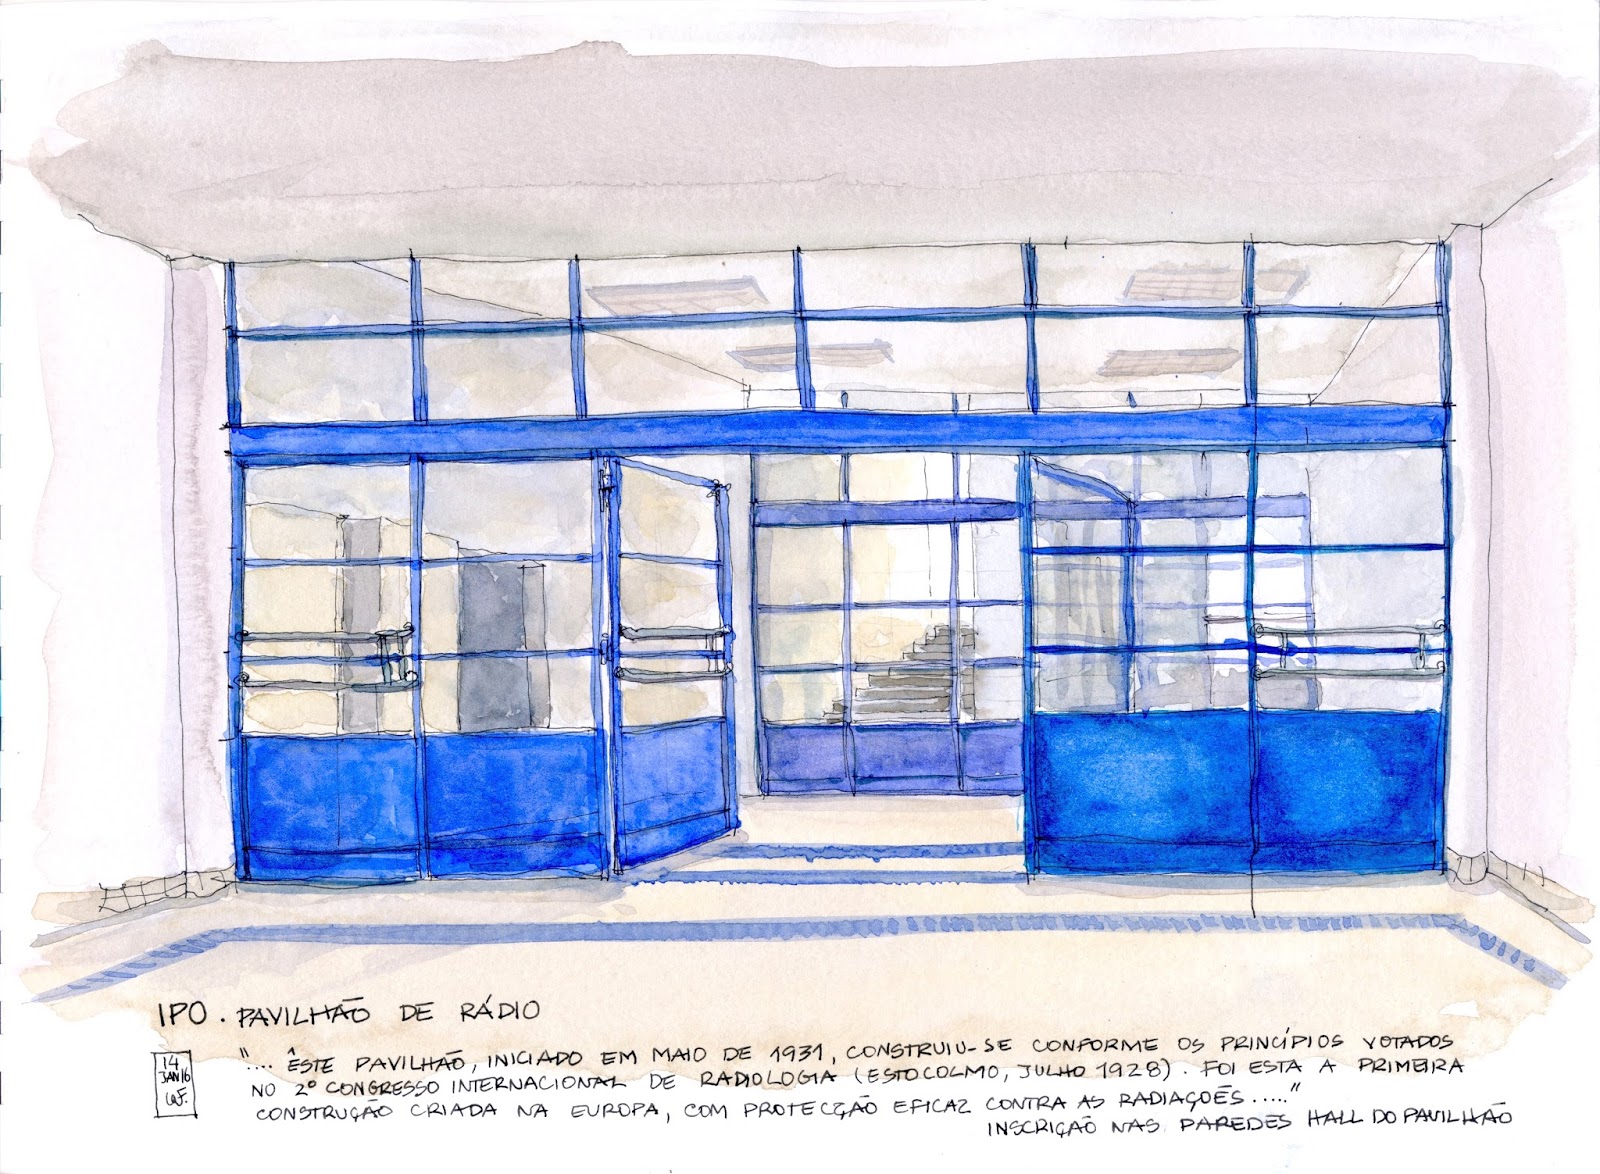 IPO. PAVILHÃO DE RÁDIO
"... ÊSTE PAVILHÃO, INICIADO EM MAIO DE 1931, CONSTRUIU-SE CONFORME OS PRINCÍPIOS VOTADOS
NO 2º CONGRESSO INTERNACIONAL DE RADIOLOGIA (ESTOCOLMO, JULHO 1928). FOI ESTA A PRIMEIRA
CONSTRUÇÃO CRIADA NA EUROPA, COM PROTECÇÃO EFICAZ CONTRA AS RADIAÇÕES....."
INSCRIÇÃO NAS PAREDES HALL DO PAVILHÃO
14
JAN16